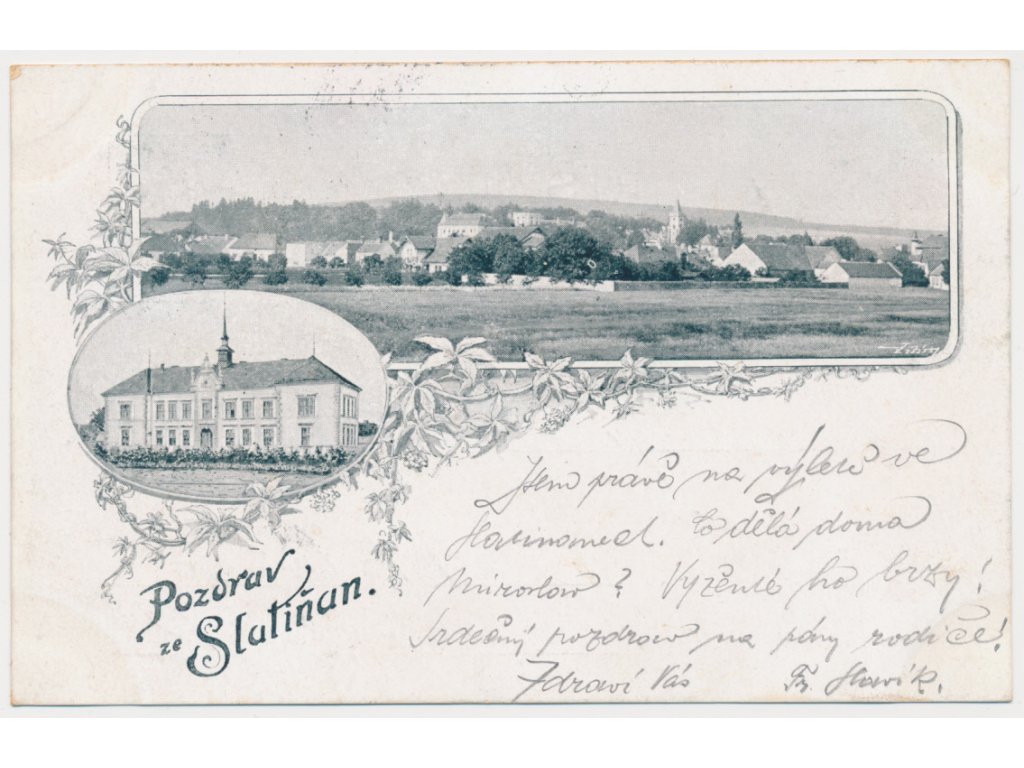 Pozdrav
ze Slatiňan.
Jsem právě na výletě ve
Slatinanech. Co dělá doma
Miroslav? Vyžeňte ho brzy!
Srdečný pozdrav na pány rodiče!
Zdraví Vás Fr. Slavík.